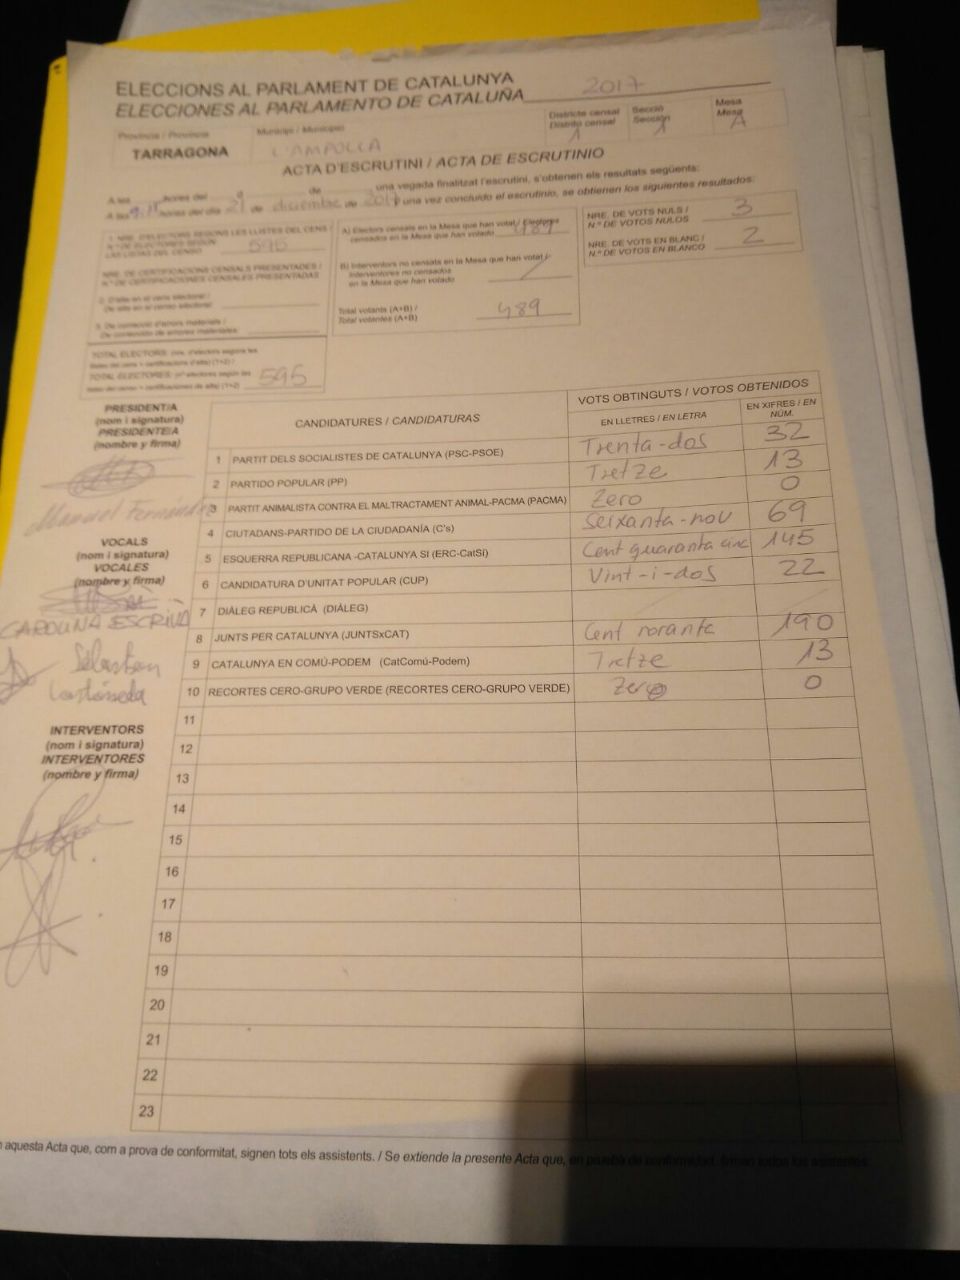 ELECCIONS AL PARLAMENT DE CATALUNYA
ELECCIONES AL PARLAMENTO DE CATALUÑA 2017
Provincia / Provincia
TARRAGONA
Municipi / Municipio
L'AMPOLLA
Districte censal
Distrito censal
1
Secció
Sección
1
Mesa
Mesa
A
ACTA D'ESCRUTINI / ACTA DE ESCRUTINIO
A les hores del d de una vegada finalitzat l'escrutini, s'obtenen els resultats següents:
A las hores del día 21 de diciembre de 2017 una vez concluido el escrutinio, se obtienen los siguientes resultados:
1. NRE. D'ELECTORS SEGONS LES LLISTES DEL CENS /
N.º DE ELECTORES SEGÚN
LAS LISTAS DEL CENSO 595
NRE. DE CERTIFICACIONS CENSALS PRESENTADES /
N.º DE CERTIFICACIONES CENSALES PRESENTADAS
2. D'alta en el cens electoral /
De alta en el censo electoral
3. De correcció d'errors materials /
De corrección de errores materiales
TOTAL ELECTORS: (nre. d'electors segons les
llistes del cens + certificacions d'alta) (1+2) /
TOTAL ELECTORES: (nº electores según las
listas del censo + certificaciones de alta) (1+2) 595
A) Electors censats en la Mesa que han votat / Electores
censados en la Mesa que han votado 489
B) Interventors no censats en la Mesa que han votat /
Interventores no censados
en la Mesa que han votado
Total votants (A+B) /
Total votantes (A+B) 489
NRE. DE VOTS NULS /
N.º DE VOTOS NULOS 3
NRE. DE VOTS EN BLANC /
N.º DE VOTOS EN BLANCO 2
PRESIDENT/A
(nom i signatura)
PRESIDENTE/A
(nombre y firma)
Manuel Fernández
VOCALS
(nom i signatura)
VOCALES
(nombre y firma)
CAROLINA ESCRIVÀ
Sebastian
Castañeda
INTERVENTORS
(nom i signatura)
INTERVENTORES
(nombre y firma)
CANDIDATURES / CANDIDATURAS
VOTS OBTINGUTS / VOTOS OBTENIDOS
EN LLETRES / EN LETRA
EN XIFRES / EN NÚM.
1 PARTIT DELS SOCIALISTES DE CATALUNYA (PSC-PSOE) Trenta-dos 32
2 PARTIDO POPULAR (PP) Tretze 13
3 PARTIT ANIMALISTA CONTRA EL MALTRACTAMENT ANIMAL-PACMA (PACMA) Zero 0
4 CIUTADANS-PARTIDO DE LA CIUDADANÍA (C's) Seixanta-nou 69
5 ESQUERRA REPUBLICANA -CATALUNYA SI (ERC-CatSí) Cent quaranta cinc 145
6 CANDIDATURA D'UNITAT POPULAR (CUP) Vint-i-dos 22
7 DIÀLEG REPUBLICÀ (DIÀLEG)
8 JUNTS PER CATALUNYA (JUNTSxCAT) Cent noranta 190
9 CATALUNYA EN COMÚ-PODEM (CatComú-Podem) Tretze 13
10 RECORTES CERO-GRUPO VERDE (RECORTES CERO-GRUPO VERDE) Zero 0
11
12
13
14
15
16
17
18
19
20
21
22
23
aquesta Acta que, com a prova de conformitat, signen tots els assistents. / Se extiende la presente Acta que, en prueba de conformidad, firman todos los asistentes.